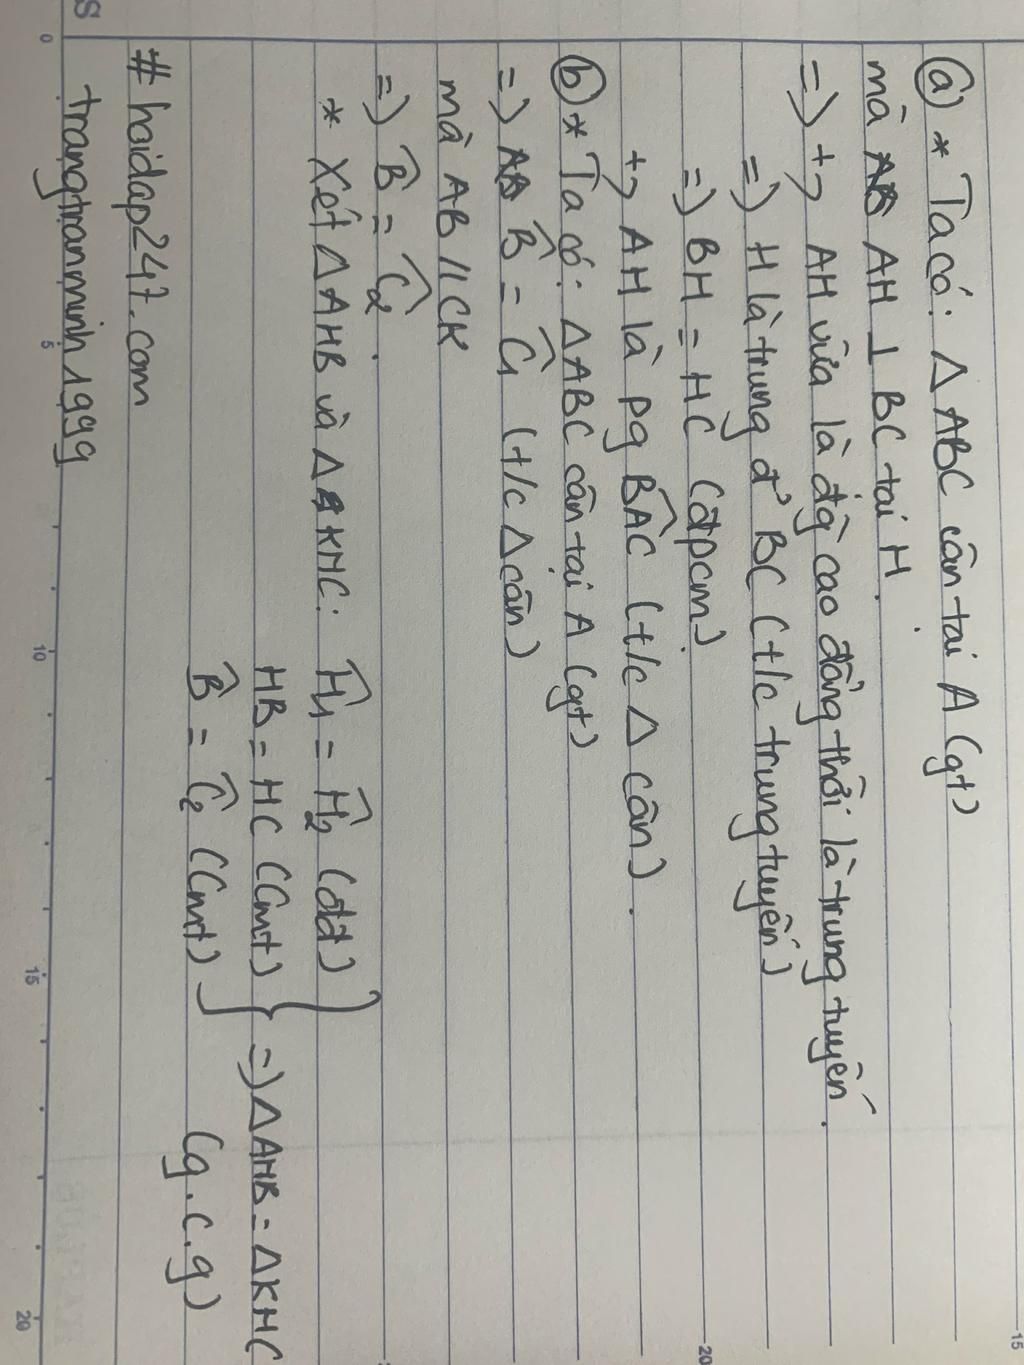 a) * Ta có: Δ ABC cân tại A (gt)
mà AH ⊥ BC tại H.
=) +, AH vừa là đg cao đồng thời là trung tuyến.
=) H là trung đ' BC (t/c trung tuyến)
=) BH = HC (đpcm)
+, AH là pg B̂AC (t/c Δ cân).
b) * Ta có: ΔABC cân tại A (gt)
=) B̂ = Ĉ₁ (t/c Δ cân)
mà AB // CK
=) B̂ = Ĉ₂.
* Xét Δ AHB và Δ KHC: Ĥ₁ = Ĥ₂ (đđ)
HB = HC (Cmt)
B̂ = Ĉ₂ (Cmt)
=) Δ AHB = Δ KHC
(g.c.g)
# hoidap247.com
trangtranminh1999
S
0 5 10 15 20
20
15